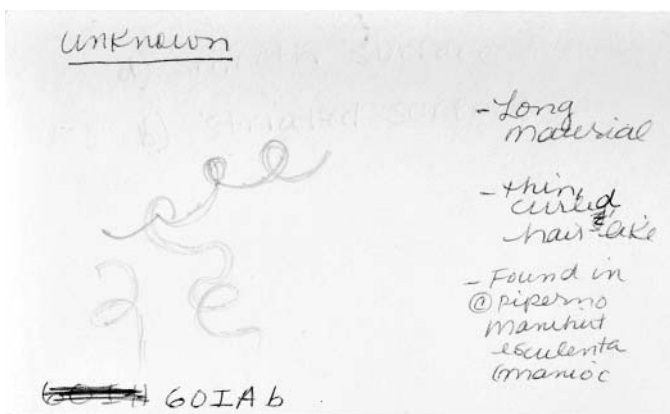 unknown
- Long
material
- thin,
curled
hair-like
- Found in
@ piperno
manihut
esculenta
(manioc
60IAb